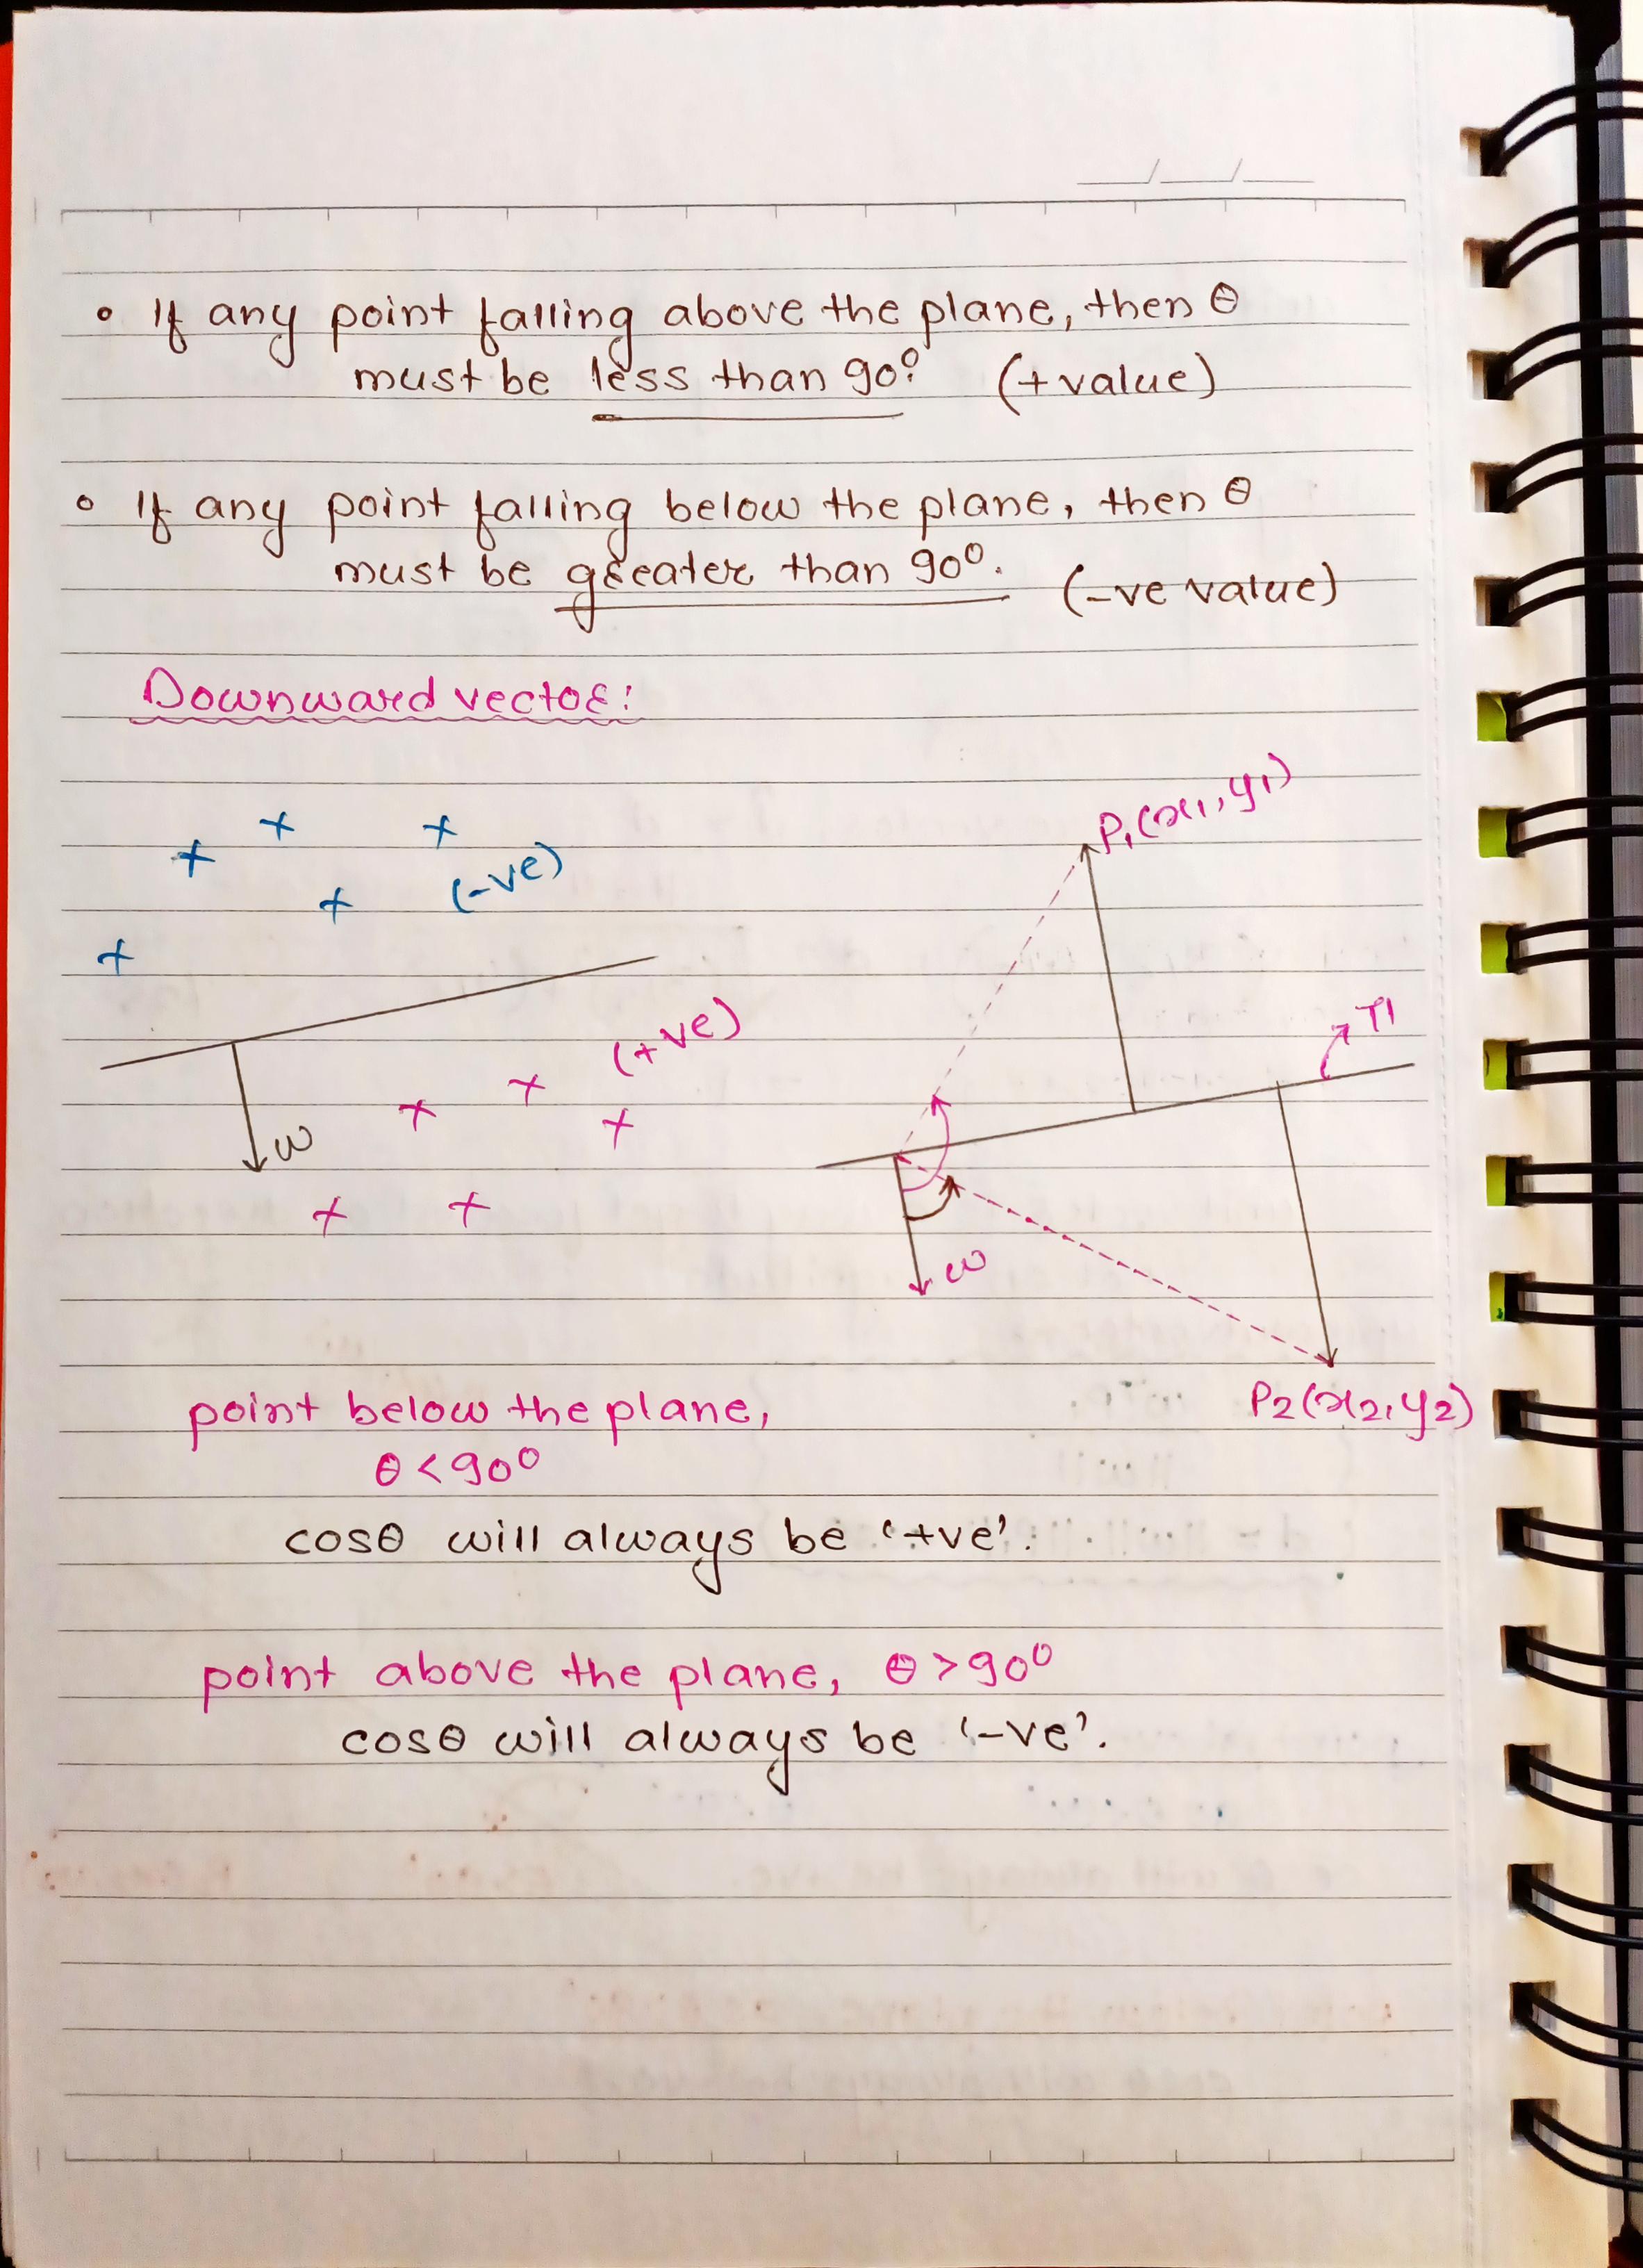 • If any point falling above the plane, then θ
must be less than 90° (+value)
• If any point falling below the plane, then θ
must be greater than 90°. (-ve value)
Downward vector:
P₁(x₁, y₁)
(-ve)
(+ve)
π
ω
ω
P2(x2, y2)
point below the plane,
θ < 90°
cosθ will always be '+ve'.
point above the plane, θ > 90°
cosθ will always be '-ve'.